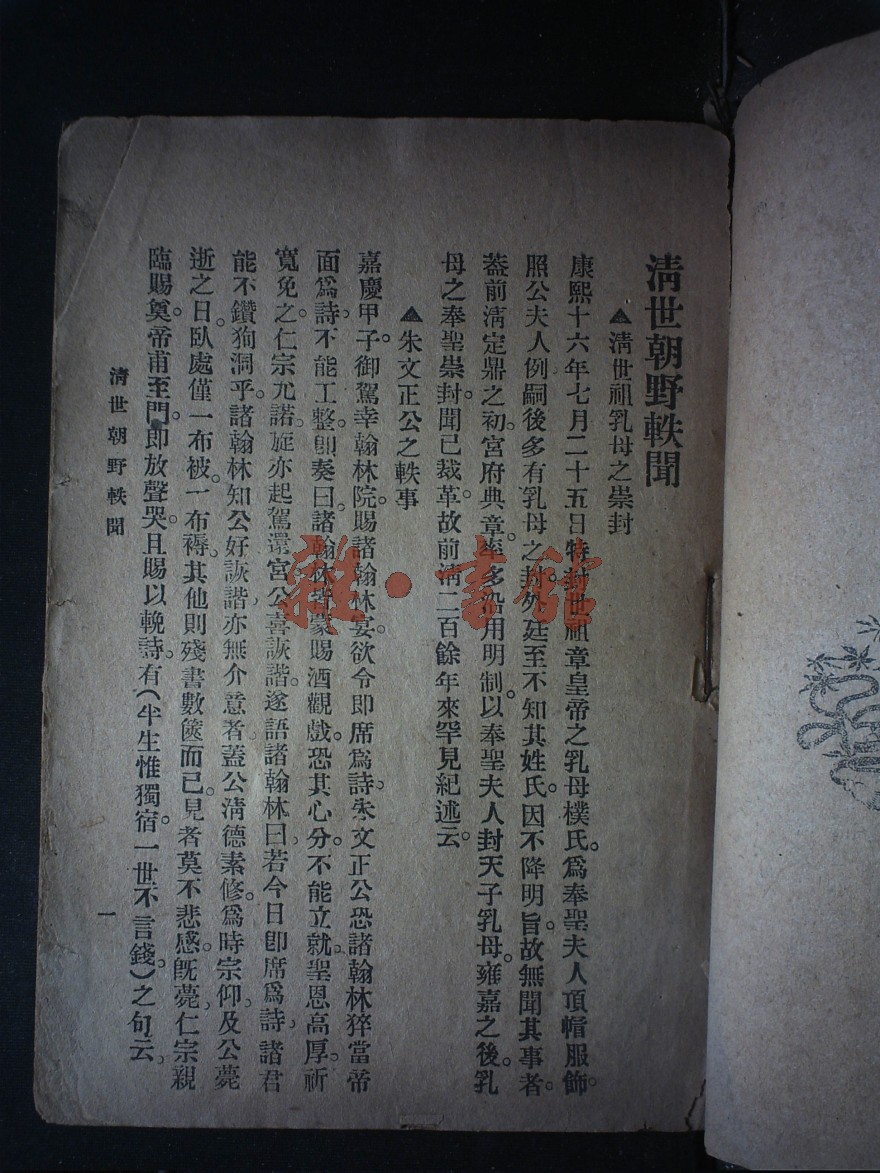 清世朝野軼聞
▲清世祖乳母之崇封
康熙十六年七月二十五日特封世祖章皇帝之乳母樸氏。爲奉聖夫人頂帽服飾。
照公夫人例嗣後多有乳母之封。外廷至不知其姓氏。因不降明旨。故無聞其事者。
蓋前淸定鼎之初。宮府典章。率多沿用明制。以奉聖夫人封天子乳母。雍嘉之後。乳
母之奉聖崇封。聞已裁革。故前淸二百餘年來罕見紀述云。
▲朱文正公之軼事
嘉慶甲子。御駕幸翰林院。賜諸翰林宴。欲令即席爲詩。朱文正公恐諸翰林猝當帝
面爲詩。不能工整。卽奏曰。諸翰林皆蒙賜酒觀戲。恐其心分。不能立就。聖恩高厚。祈
寬免之。仁宗尤諾。旋亦起駕還宮。公喜詼諧。遂語諸翰林曰。若今日卽席爲詩。諸君
能不鑽狗洞乎。諸翰林知公好詼諧。亦無介意者。蓋公淸德素修。爲時宗仰。及公薨
逝之日。臥處僅一布被。一布褥。其他則殘書數篋而已。見者莫不悲感。旣薨。仁宗親
臨賜奠。帝甫至門。卽放聲哭。且賜以輓詩。有(半生惟獨宿一世不言錢)之句云。
清世朝野軼聞
一
雜·書館